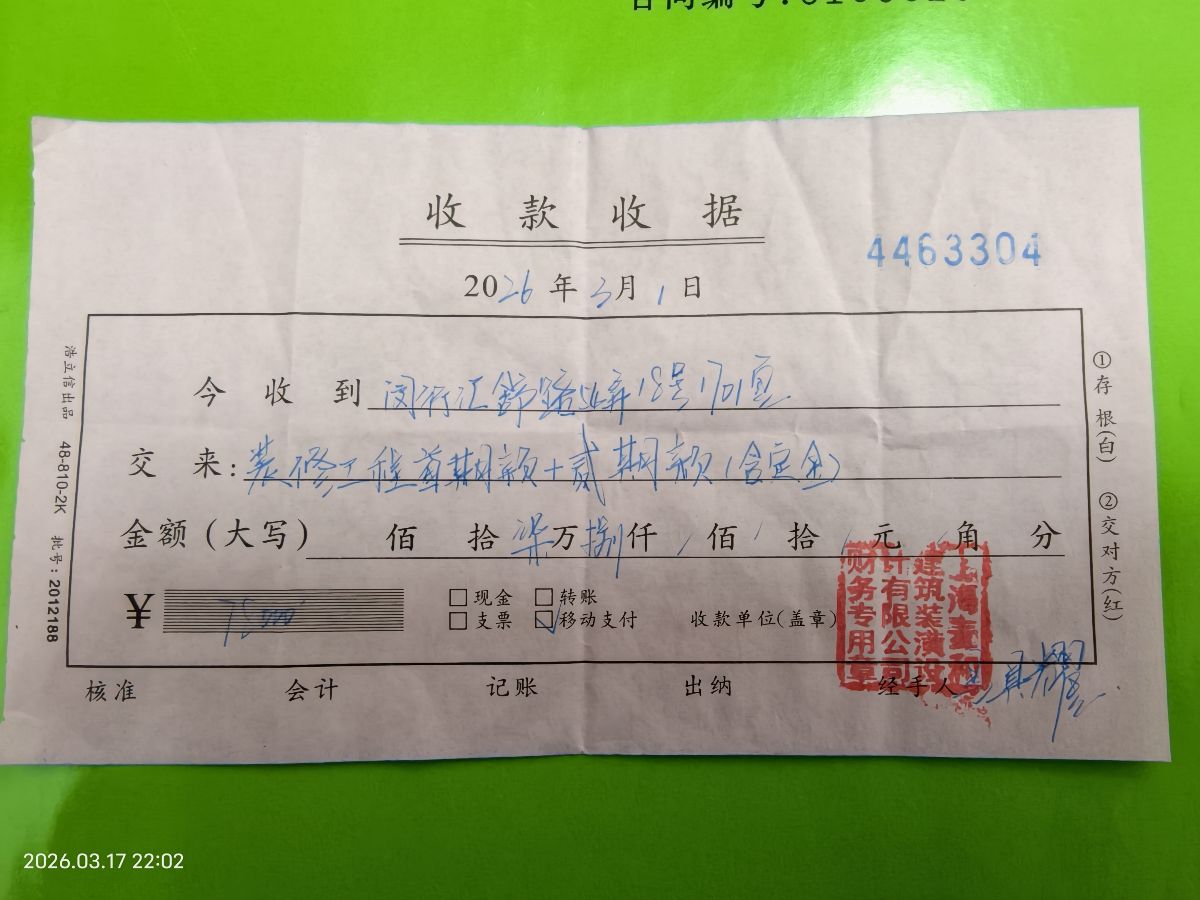 收款收据
4463304
2026年3月1日
今收到 闵行汇锦路 弄18号1701室
交来:装修工程首期款+贰期款(含定金)
金额(大写) 佰 拾 柒万 捌仟 / 佰 / 拾 / 元 角 分
¥ 78000
□现金 □转账
□支票 ☑移动支付 收款单位(盖章)
核准 会计 记账 出纳 经手人
浩立信出品 48-810-2K 批号:2012188
①存根(白) ②交对方(红)
建筑装潢设
计有限公司
财务专用章
2026.03.17 22:02